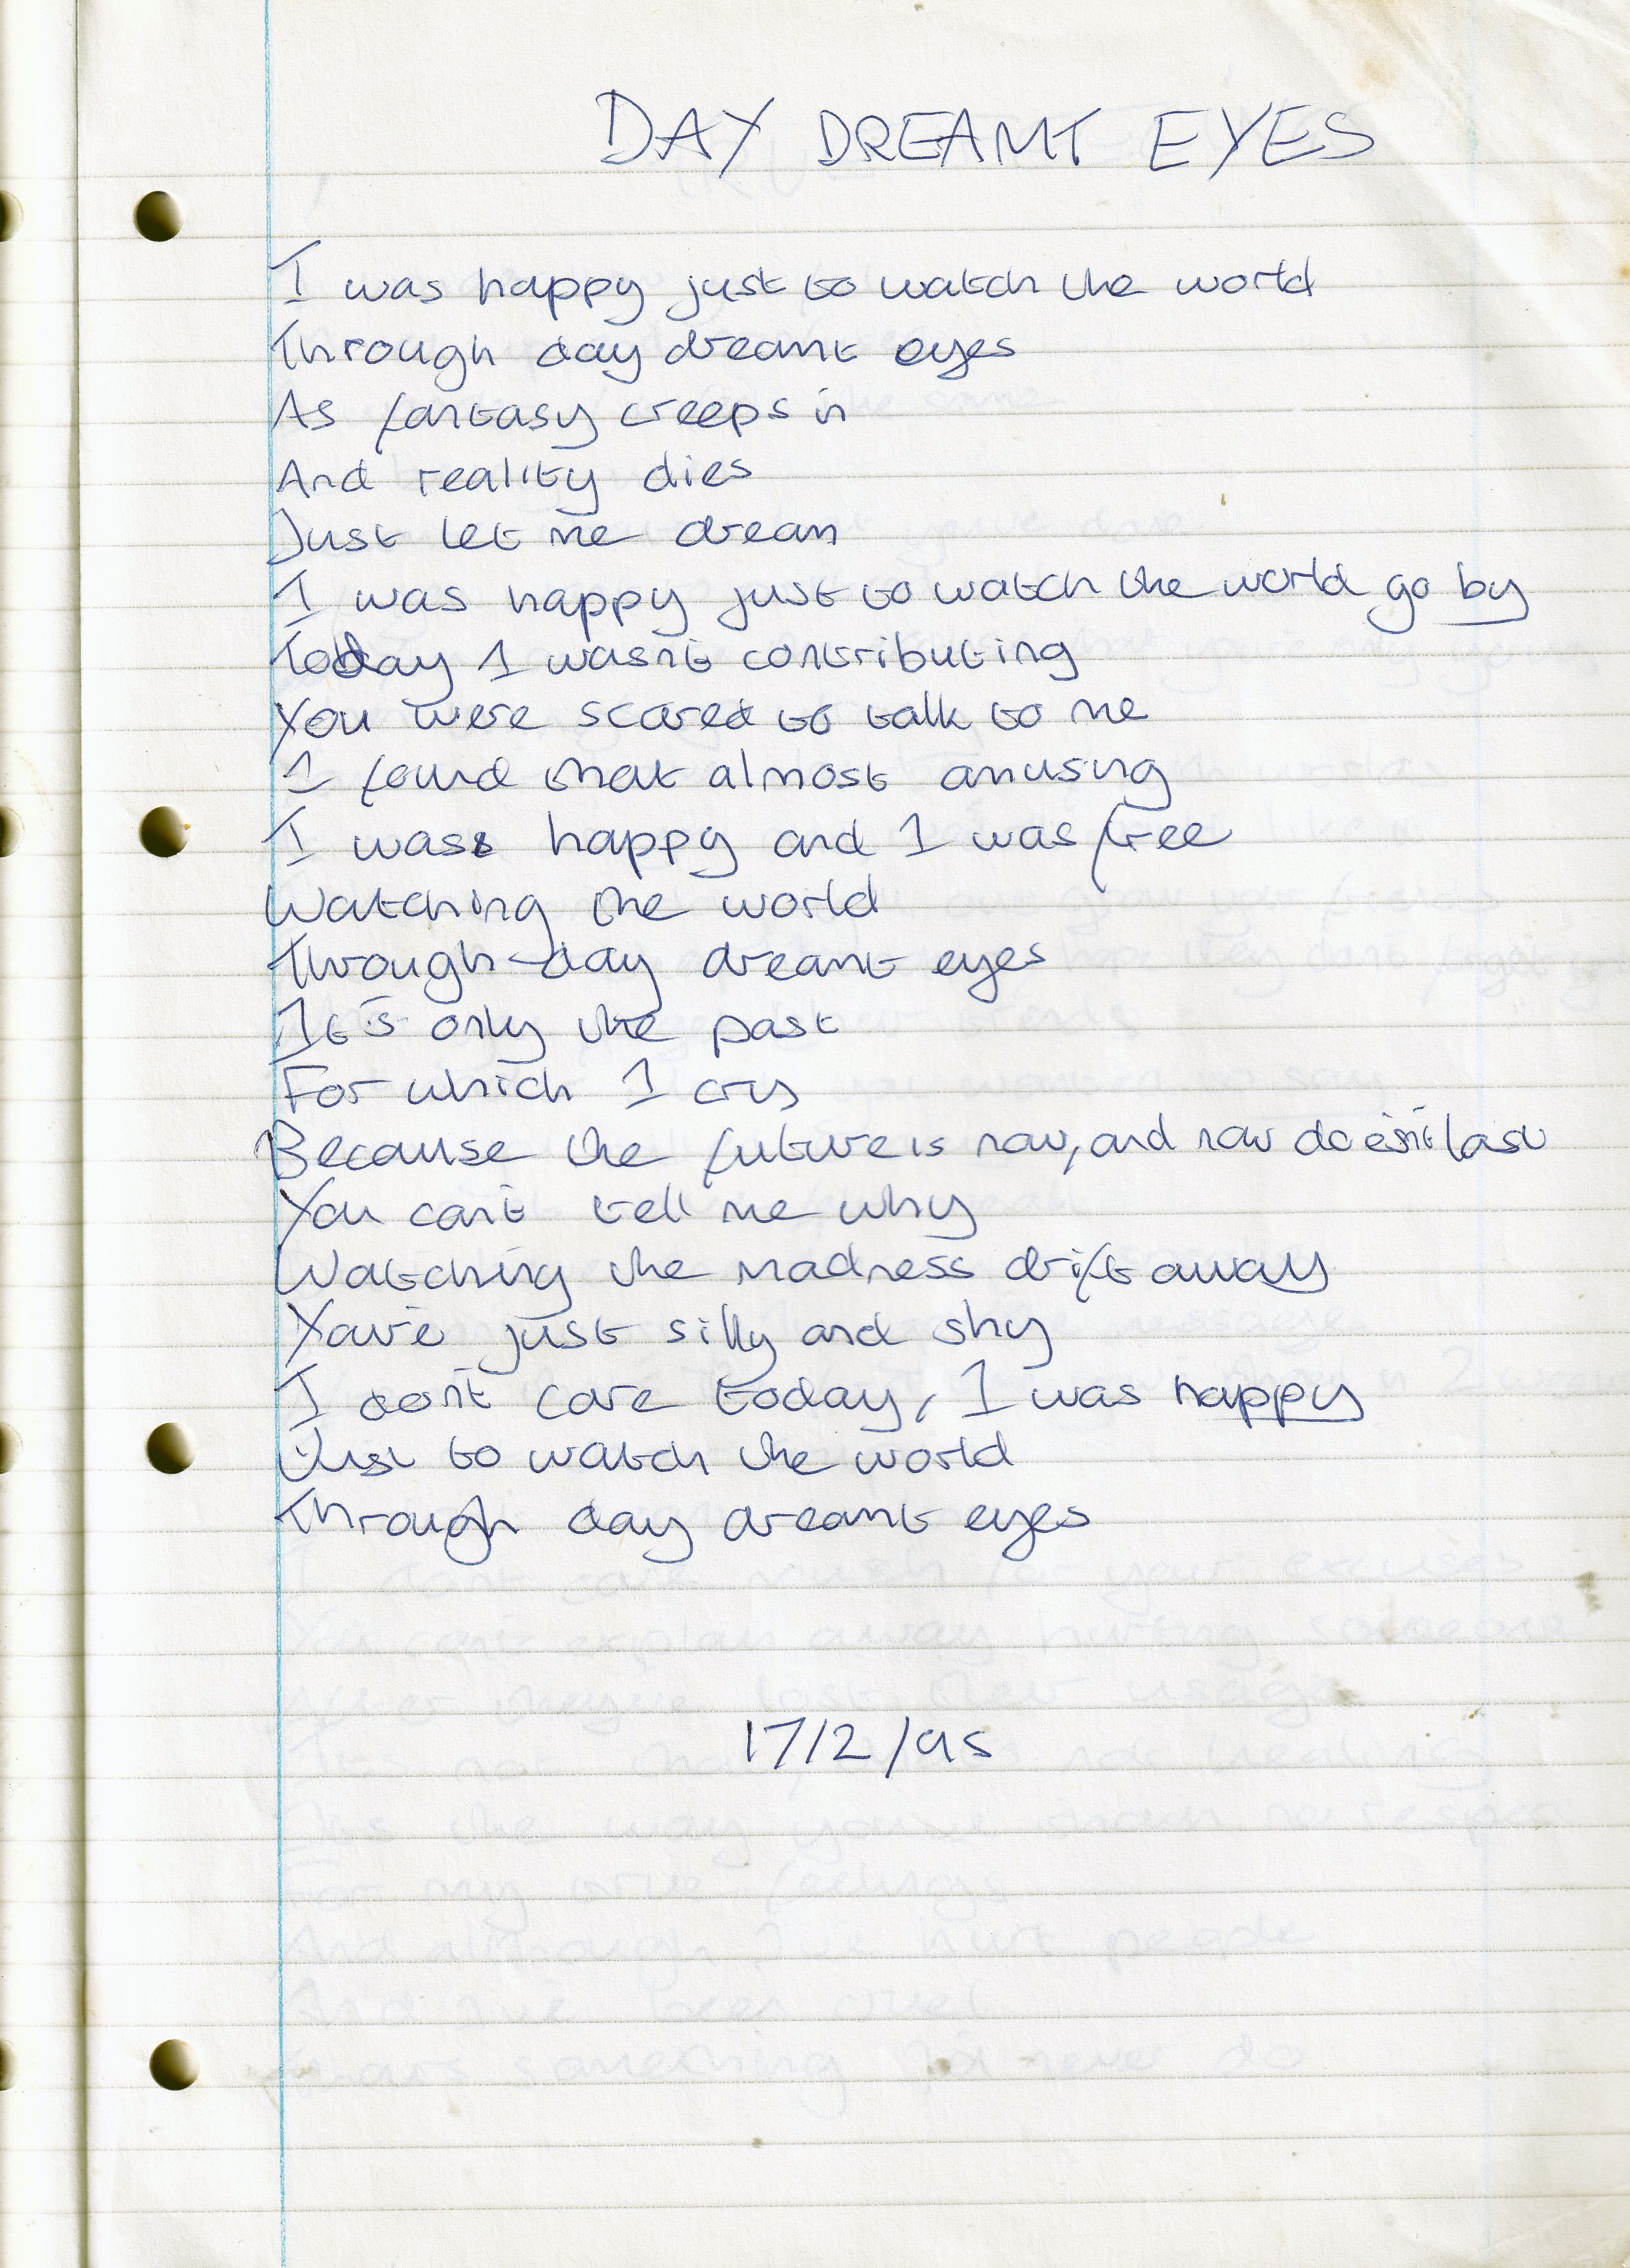 DAY DREAMT EYES
I was happy just to watch the world
Through day dreamt eyes
As fantasy creeps in
And reality dies
Just let me dream
I was happy just to watch the world go by
Today I wasn't contributing
You were scared to talk to me
I found that almost amusing
I was happy and I was free
Watching the world
Through day dreamt eyes
It's only the past
For which I cry
Because the future is now, and now doesn't last
You can't tell me why
Watching the madness drift away
You're just silly and shy
I don't care today, I was happy
Just to watch the world
Through day dreamt eyes
17/2/95